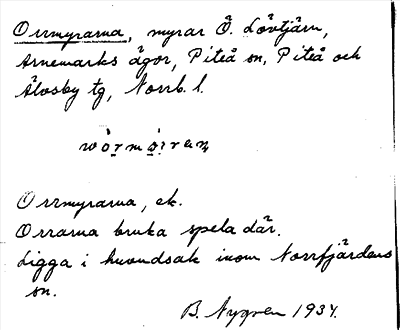 Orrmyrarna, myrar Ö. Lövtjärn,
Arnemarks ägor, Piteå sn, Piteå och
Älvsby tg, Norrb. l.
Orrmyrarna, ek.
Orrarna bruka spela där.
Ligga i huvudsak inom Norrfjärdens
sn.
B. Nygren 1937.